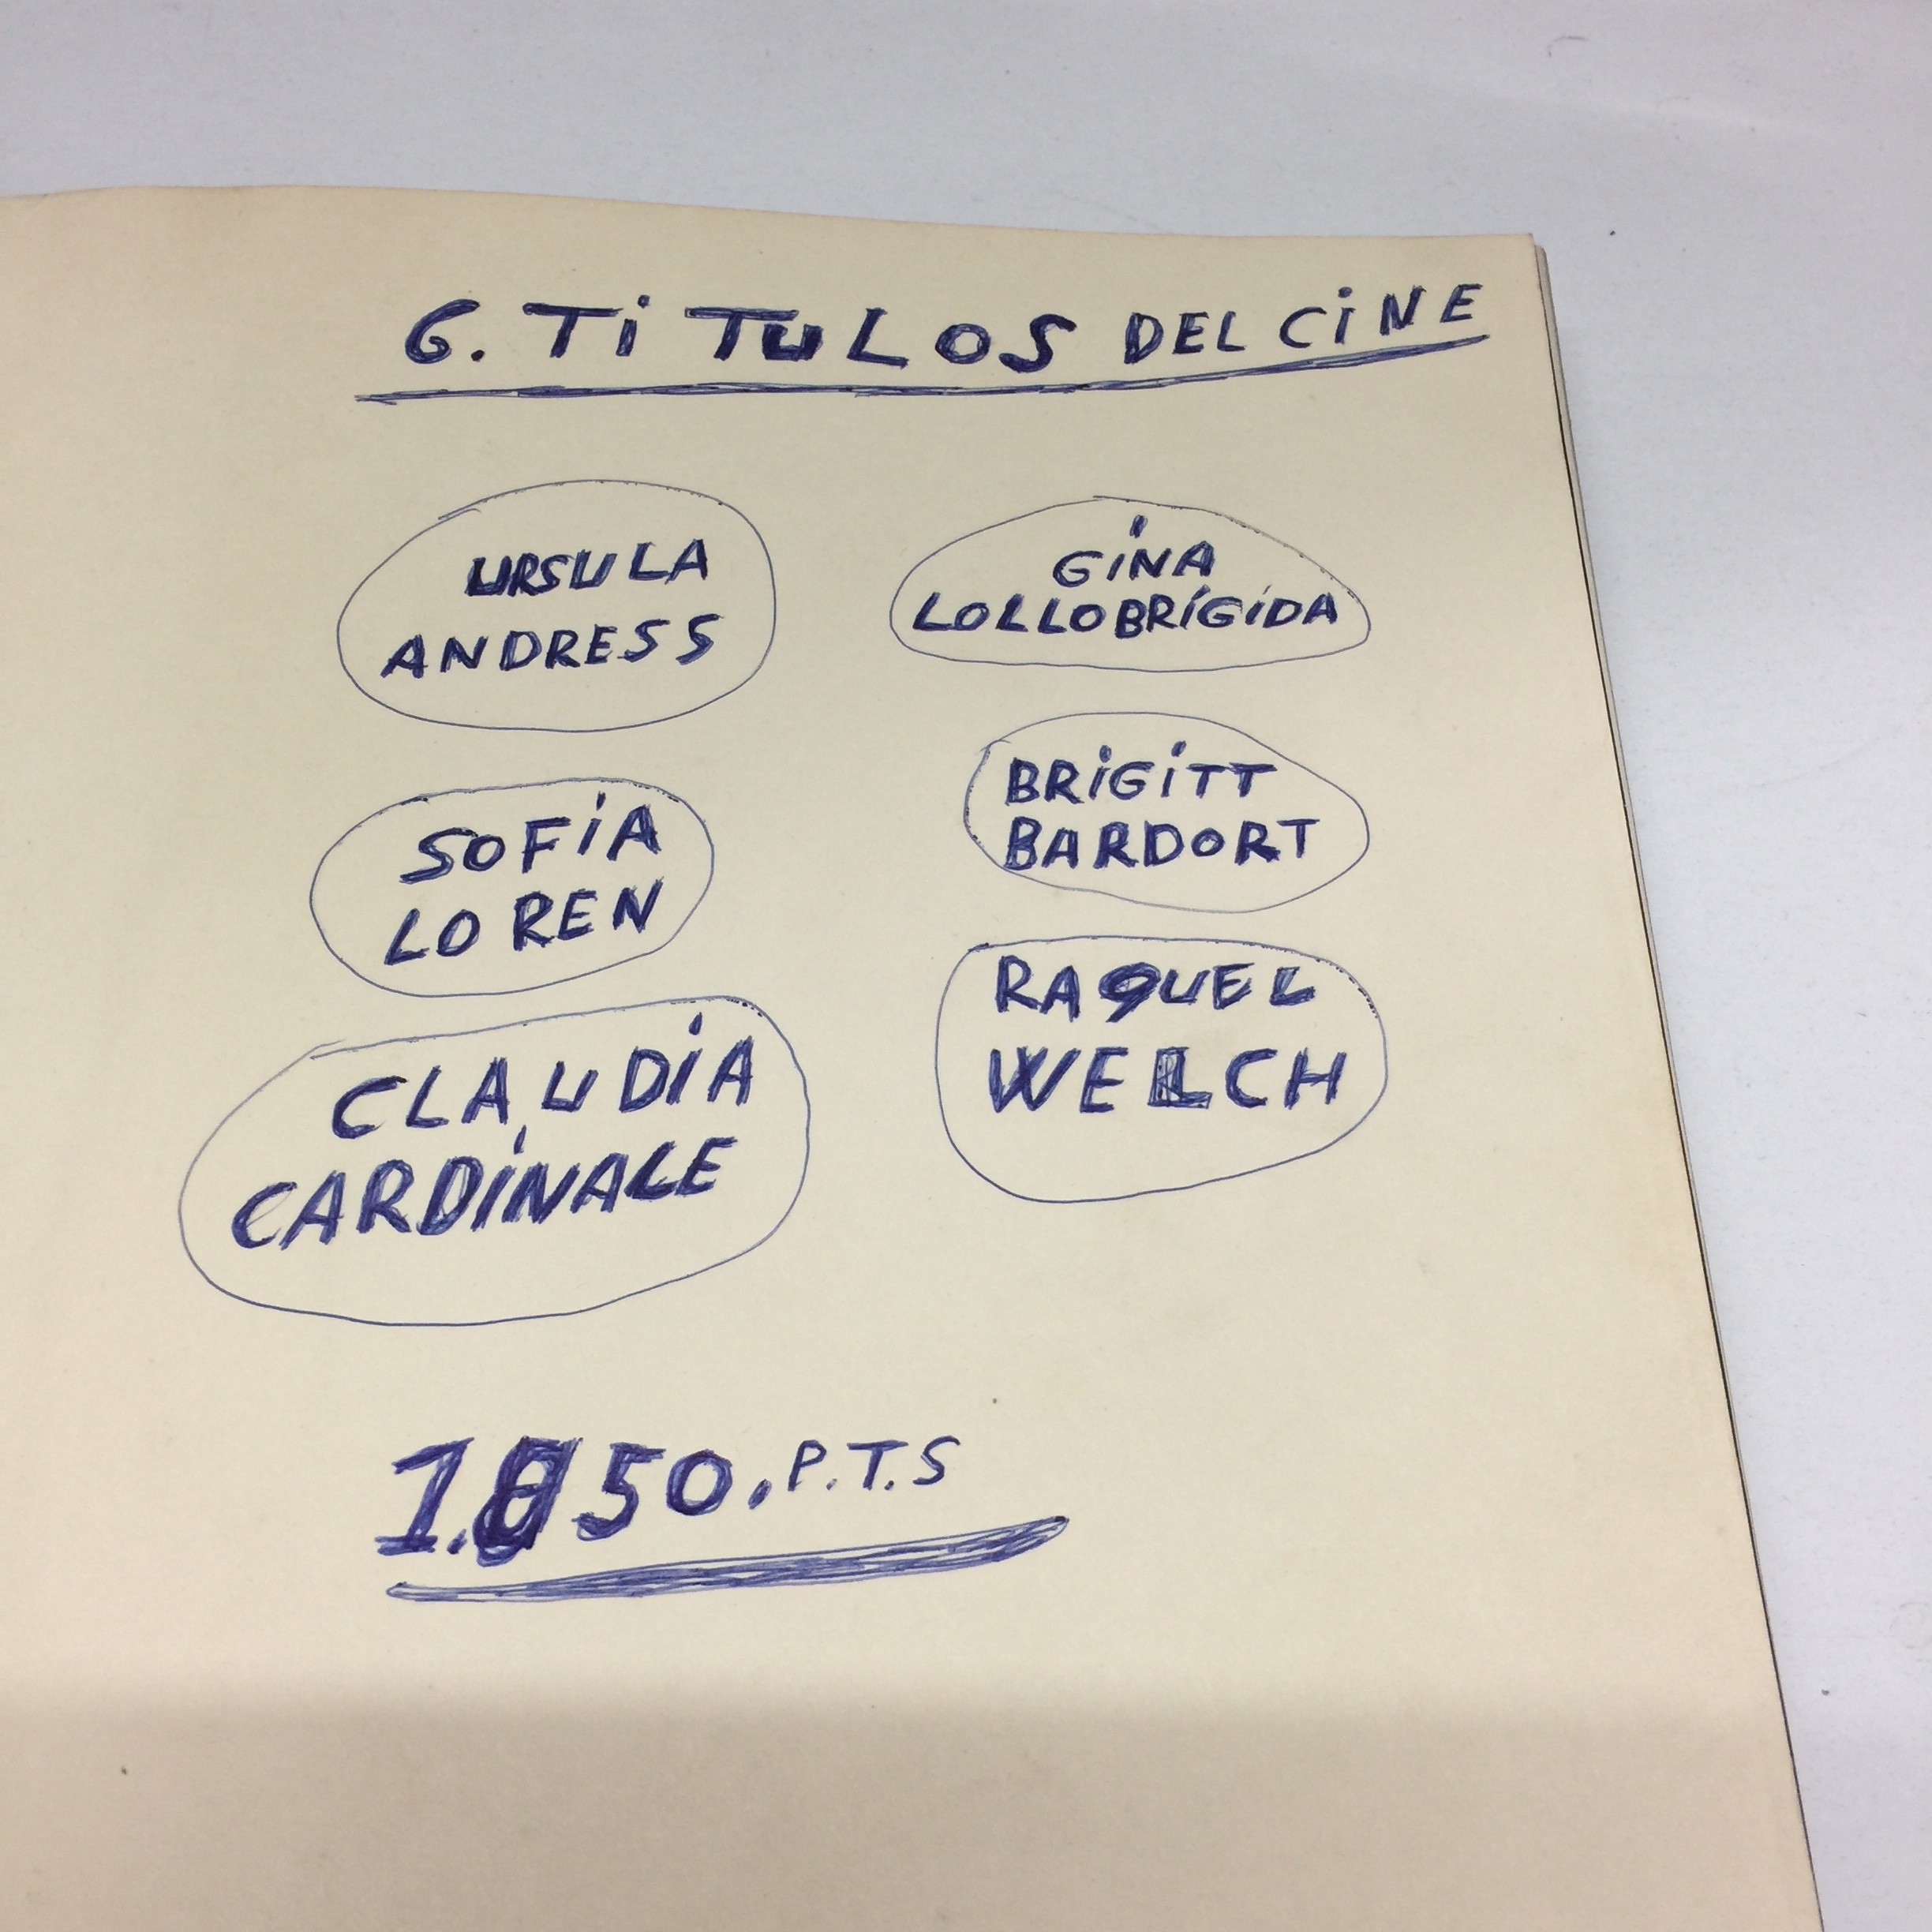 6. TiTULOS DEL CiNE
URSULA
ANDRESS
GiNA
LOLLOBRiGiDA
SOFiA
LOREN
BRiGiTT
BARDORT
CLAUDiA
CARDiNALE
RAQUEL
WELCH
P.T.S